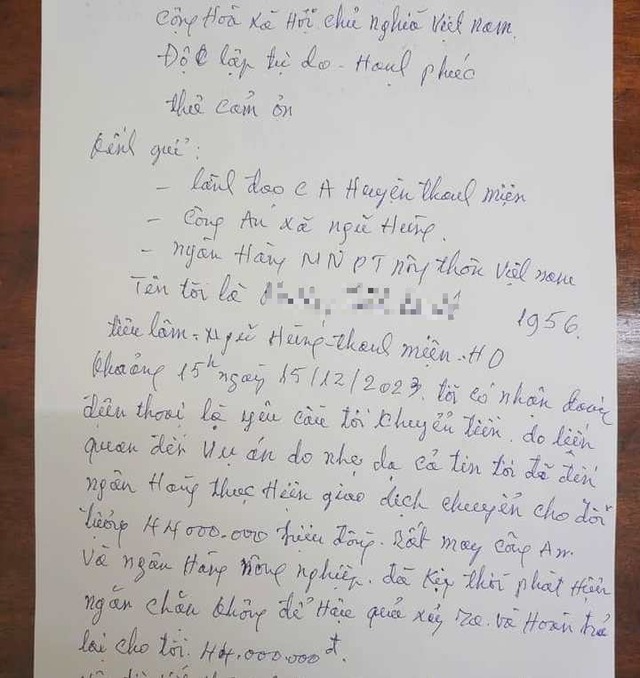 Cộng Hoà xã Hội chủ nghĩa Việt nam.
Độc lập tự do - Hạnh phúc
thư cảm ơn
Kính gửi :
- lãnh đạo C A Huyện thanh miện
- Công An xã ngũ Hùng.
- ngân Hàng NN PT nông thôn Việt nam
Tên tôi là 1956.
tiêu lâm - ngũ Hùng - thanh miện - HD
khoảng 15h ngày 15/12/2023. tôi có nhận được
điện thoại lạ yêu cầu tôi chuyển tiền. do liên
quan đến vụ án do nhẹ dạ cả tin tôi đã đến
ngân Hàng thực Hiện giao dịch chuyển cho đối
tượng 44000.000 triệu đồng. Rất may công An
Và ngân Hàng nông nghiệp. đã kịp thời phát Hiện
ngăn chặn không để Hậu quả xảy ra. và Hoàn trả
lại cho tôi. 44.000.000đ.